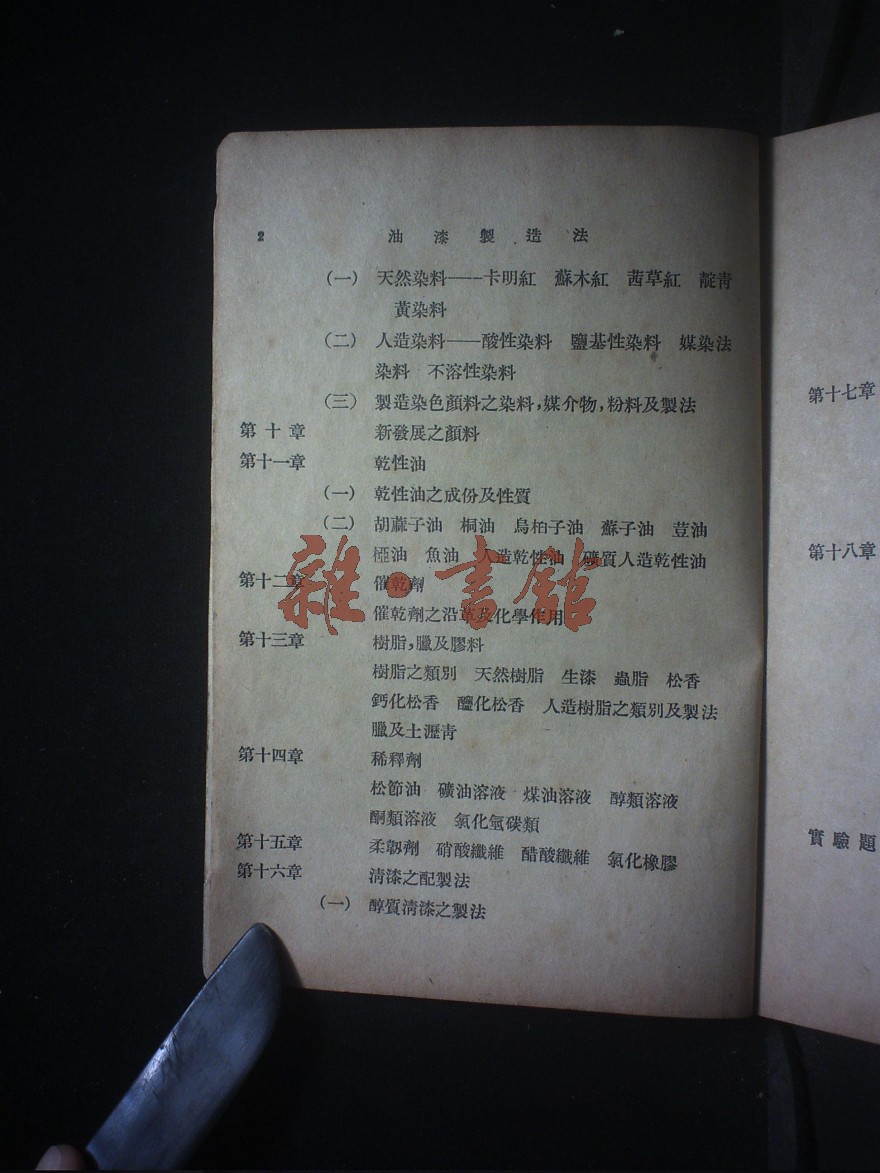 2 油漆製造法
(一) 天然染料——卡明紅 蘇木紅 茜草紅 靛靑
黃染料
(二) 人造染料——酸性染料 鹽基性染料 媒染法
染料 不溶性染料
(三) 製造染色顏料之染料,媒介物,粉料及製法
第十章 新發展之顏料
第十一章 乾性油
(一) 乾性油之成份及性質
(二) 胡蔴子油 桐油 烏桕子油 蘇子油 荳油
椏油 魚油 人造乾性油 礦質人造乾性油
第十二章 催乾劑
催乾劑之沿革及化學作用
第十三章 樹脂,臘及膠料
樹脂之類別 天然樹脂 生漆 蟲脂 松香
鈣化松香 醯化松香 人造樹脂之類別及製法
臘及土瀝靑
第十四章 稀釋劑
松節油 礦油溶液 煤油溶液 醇類溶液
酮類溶液 氯化氫碳類
第十五章 柔韌劑 硝酸纖維 醋酸纖維 氯化橡膠
第十六章 淸漆之配製法
(一) 醇質淸漆之製法
第十七章
第十八章
實驗題
雜·書館